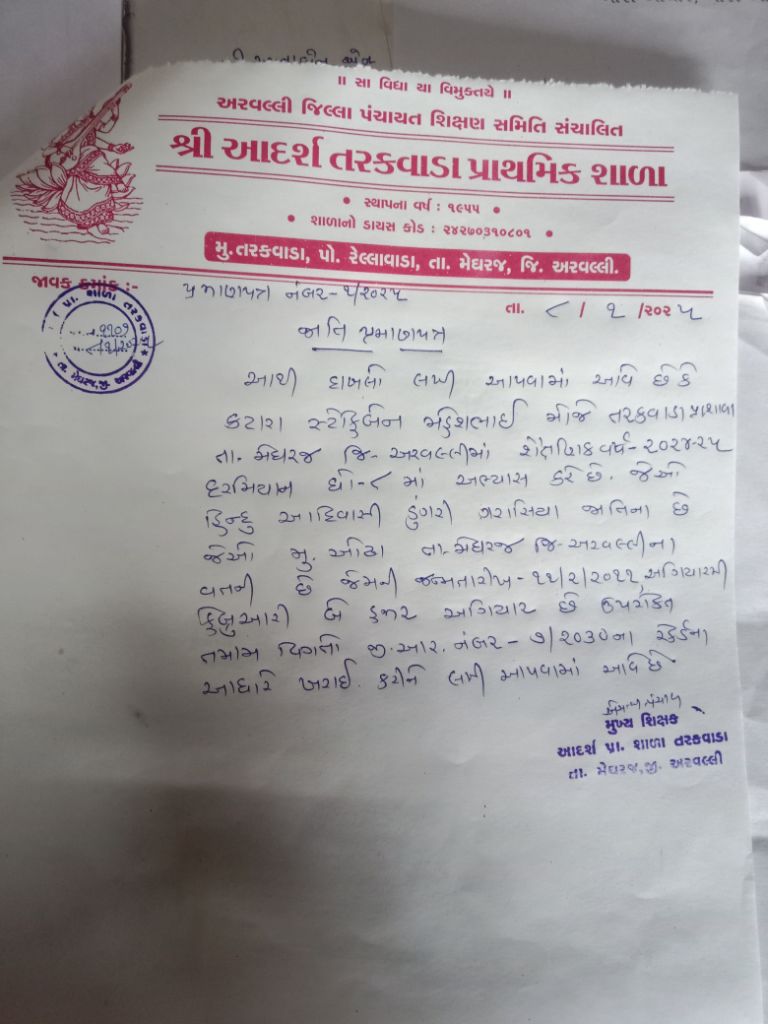 ॥ સા વિદ્યા યા વિમુક્તયે ॥
અરવલ્લી જિલ્લા પંચાયત શિક્ષણ સમિતિ સંચાલિત
શ્રી આદર્શ તરકવાડા પ્રાથમિક શાળા
• સ્થાપના વર્ષ : ૧૯૫૫ •
• શાળાનો ડાયસ કોડ : ૨૪૨૭૦૩૧૦૮૦૧ •
મુ.તરકવાડા, પો. રેલ્લાવાડા, તા. મેઘરજ, જિ. અરવલ્લી.
જાવક ક્રમાંક :-
પ્રમાણપત્ર નંબર-૧/૨૦૨૫
તા. ૮ / ૧ /૨૦૨૫
પ્રા. શાળા તરકવાડા
તા. મેઘરજ,જી. અરવલ્લી
જાતિ પ્રમાણપત્ર
આથી દાખલો લખી આપવામાં આવે છે કે
કટારા મહેશભાઈ મોજે તરકવાડા પ્રા શાળા
તા. મેઘરજ જિ- અરવલ્લીમાં શૈક્ષણિક વર્ષ- ૨૦૨૪-૨૫
દરમિયાન ધો-૮ માં અભ્યાસ કરે છે. જેઓ
હિન્દુ આદિવાસી ડુંગરી ગરાસિયા જાતિના છે
જેઓ મુ. ઓઢા તા-મેઘરજ જિ-અરવલ્લીના
વતની છે જેમની જન્મતારીખ - ૧૧/૨/૨૦૧૧, અગિયારમી
ફેબ્રુઆરી બે હજાર અગિયાર છે ઉપરોક્ત
તમામ વિગતો જી.આર. નંબર - ૭/૨૦૩૦ના રેકર્ડના
આધારે ખરાઈ કરીને લખી આપવામાં આવે છે
મુખ્ય શિક્ષક
આદર્શ પ્રા. શાળા તરકવાડા
તા. મેઘરજ,જી. અરવલ્લી